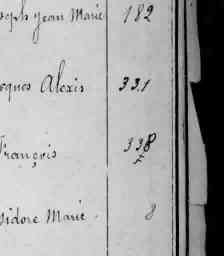 oseph Jean Marie 182
cques Alexis 331
François 338
sidore Marie. 8